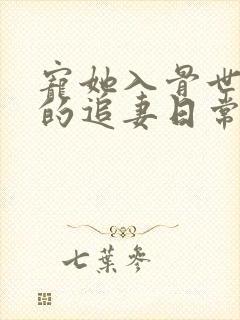 寵她入骨世
的追妻日常
七葉參